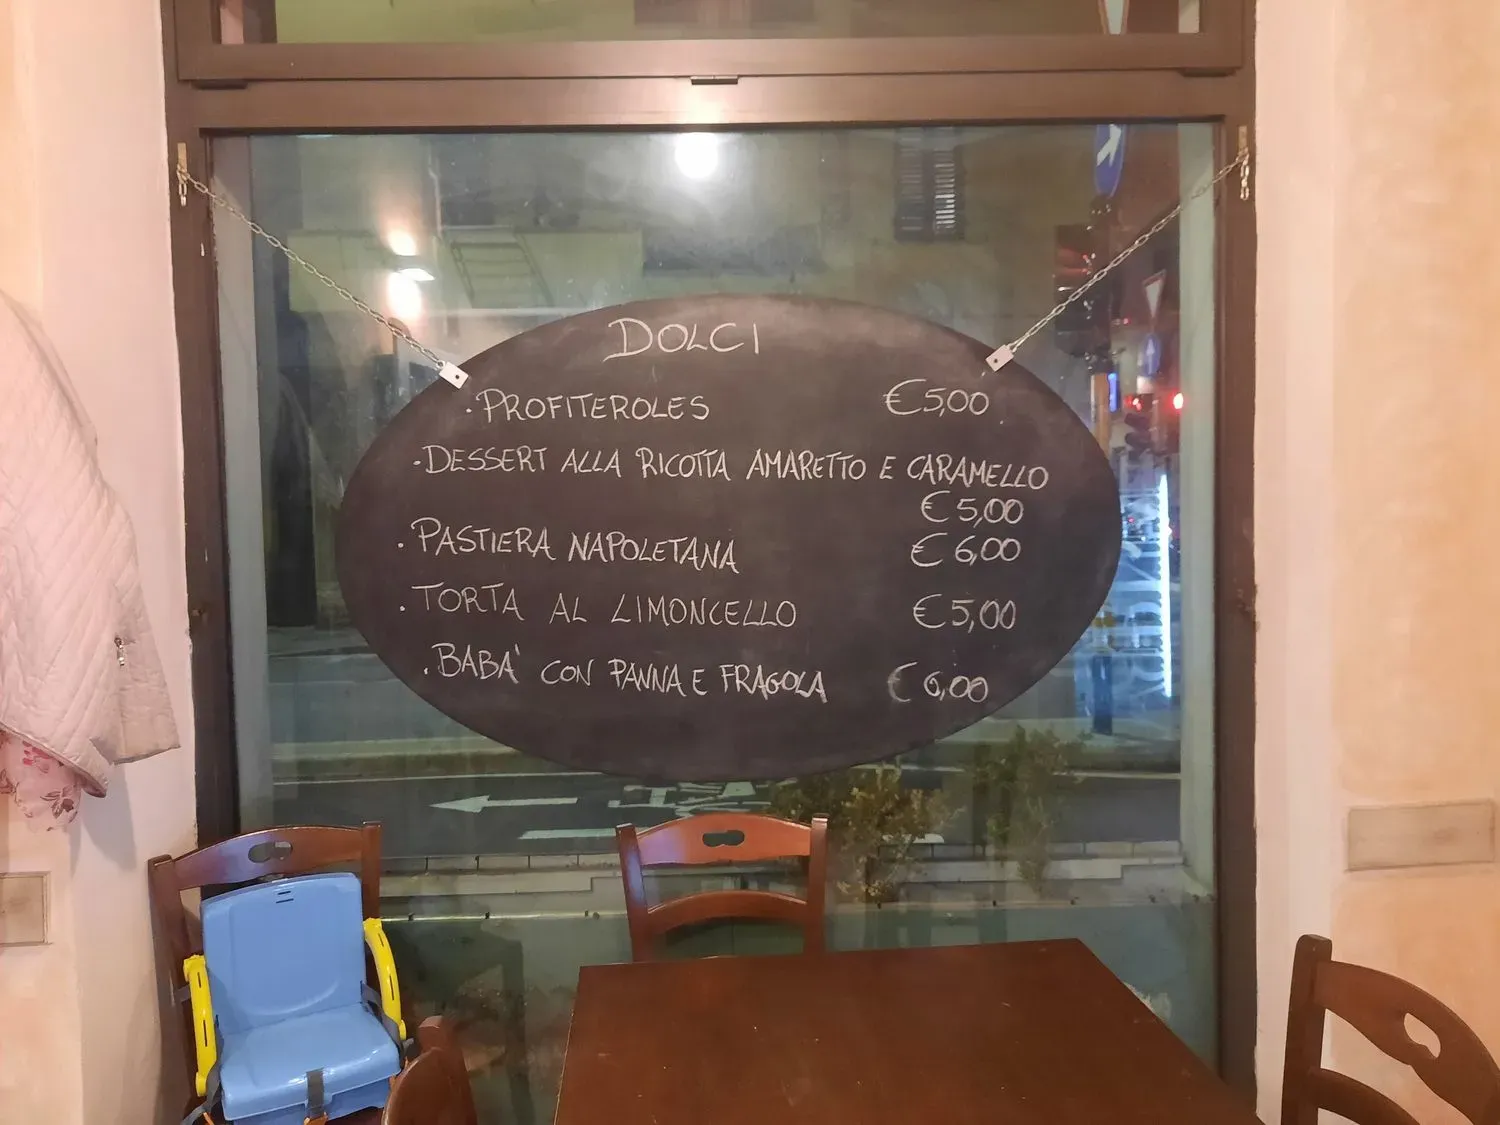 DOLCI
· PROFITEROLES €5,00
· DESSERT ALLA RICOTTA AMARETTO E CARAMELLO
€5,00
· PASTIERA NAPOLETANA €6,00
· TORTA AL LIMONCELLO €5,00
· BABA' CON PANNA E FRAGOLA €6,00